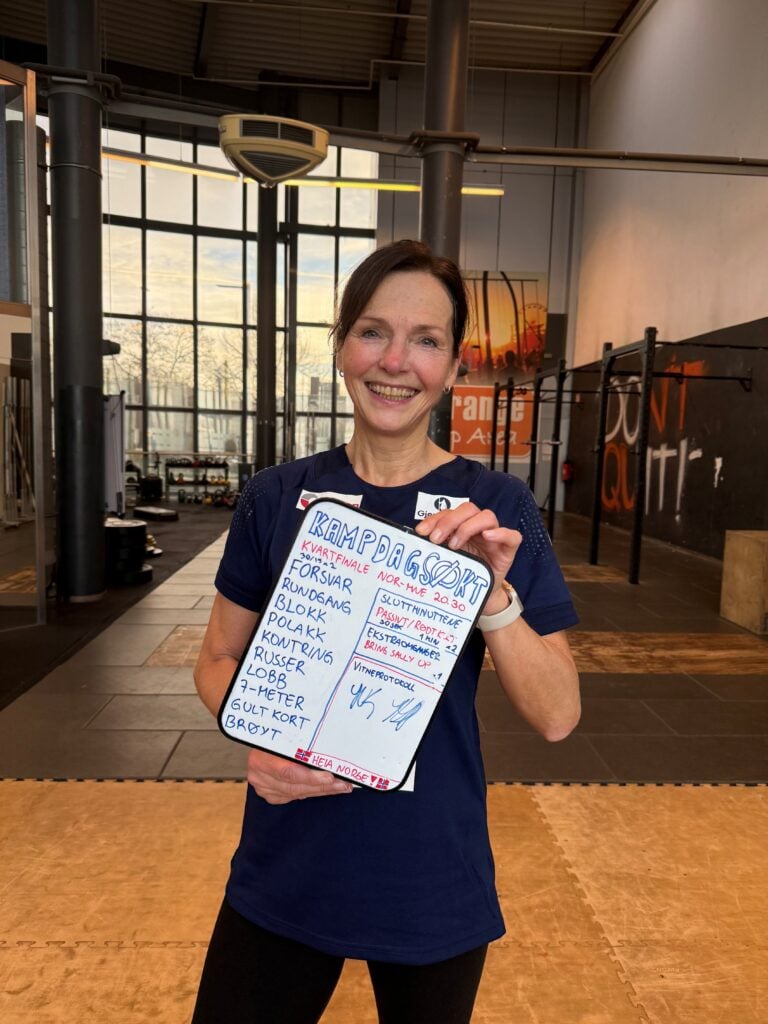 KAMPDAGSØKT
KVARTFINALE NOR-HUE 20.30
FORSVAR
RUNDGANG
BLOKK
POLAKK
KONTRING
RUSSER
LOBB
7-METER
GULT KORT
BRØYT
SLUTTMINUTTENE
PASSIVT/RØDT KRT
30SEK 1 MIN x2
EKSTRAOMGANGER
BRING SALLY UP x1
VITNEPROTOKOLL
HEIA NORGE!
range
p Area
DON'T
QUIT!